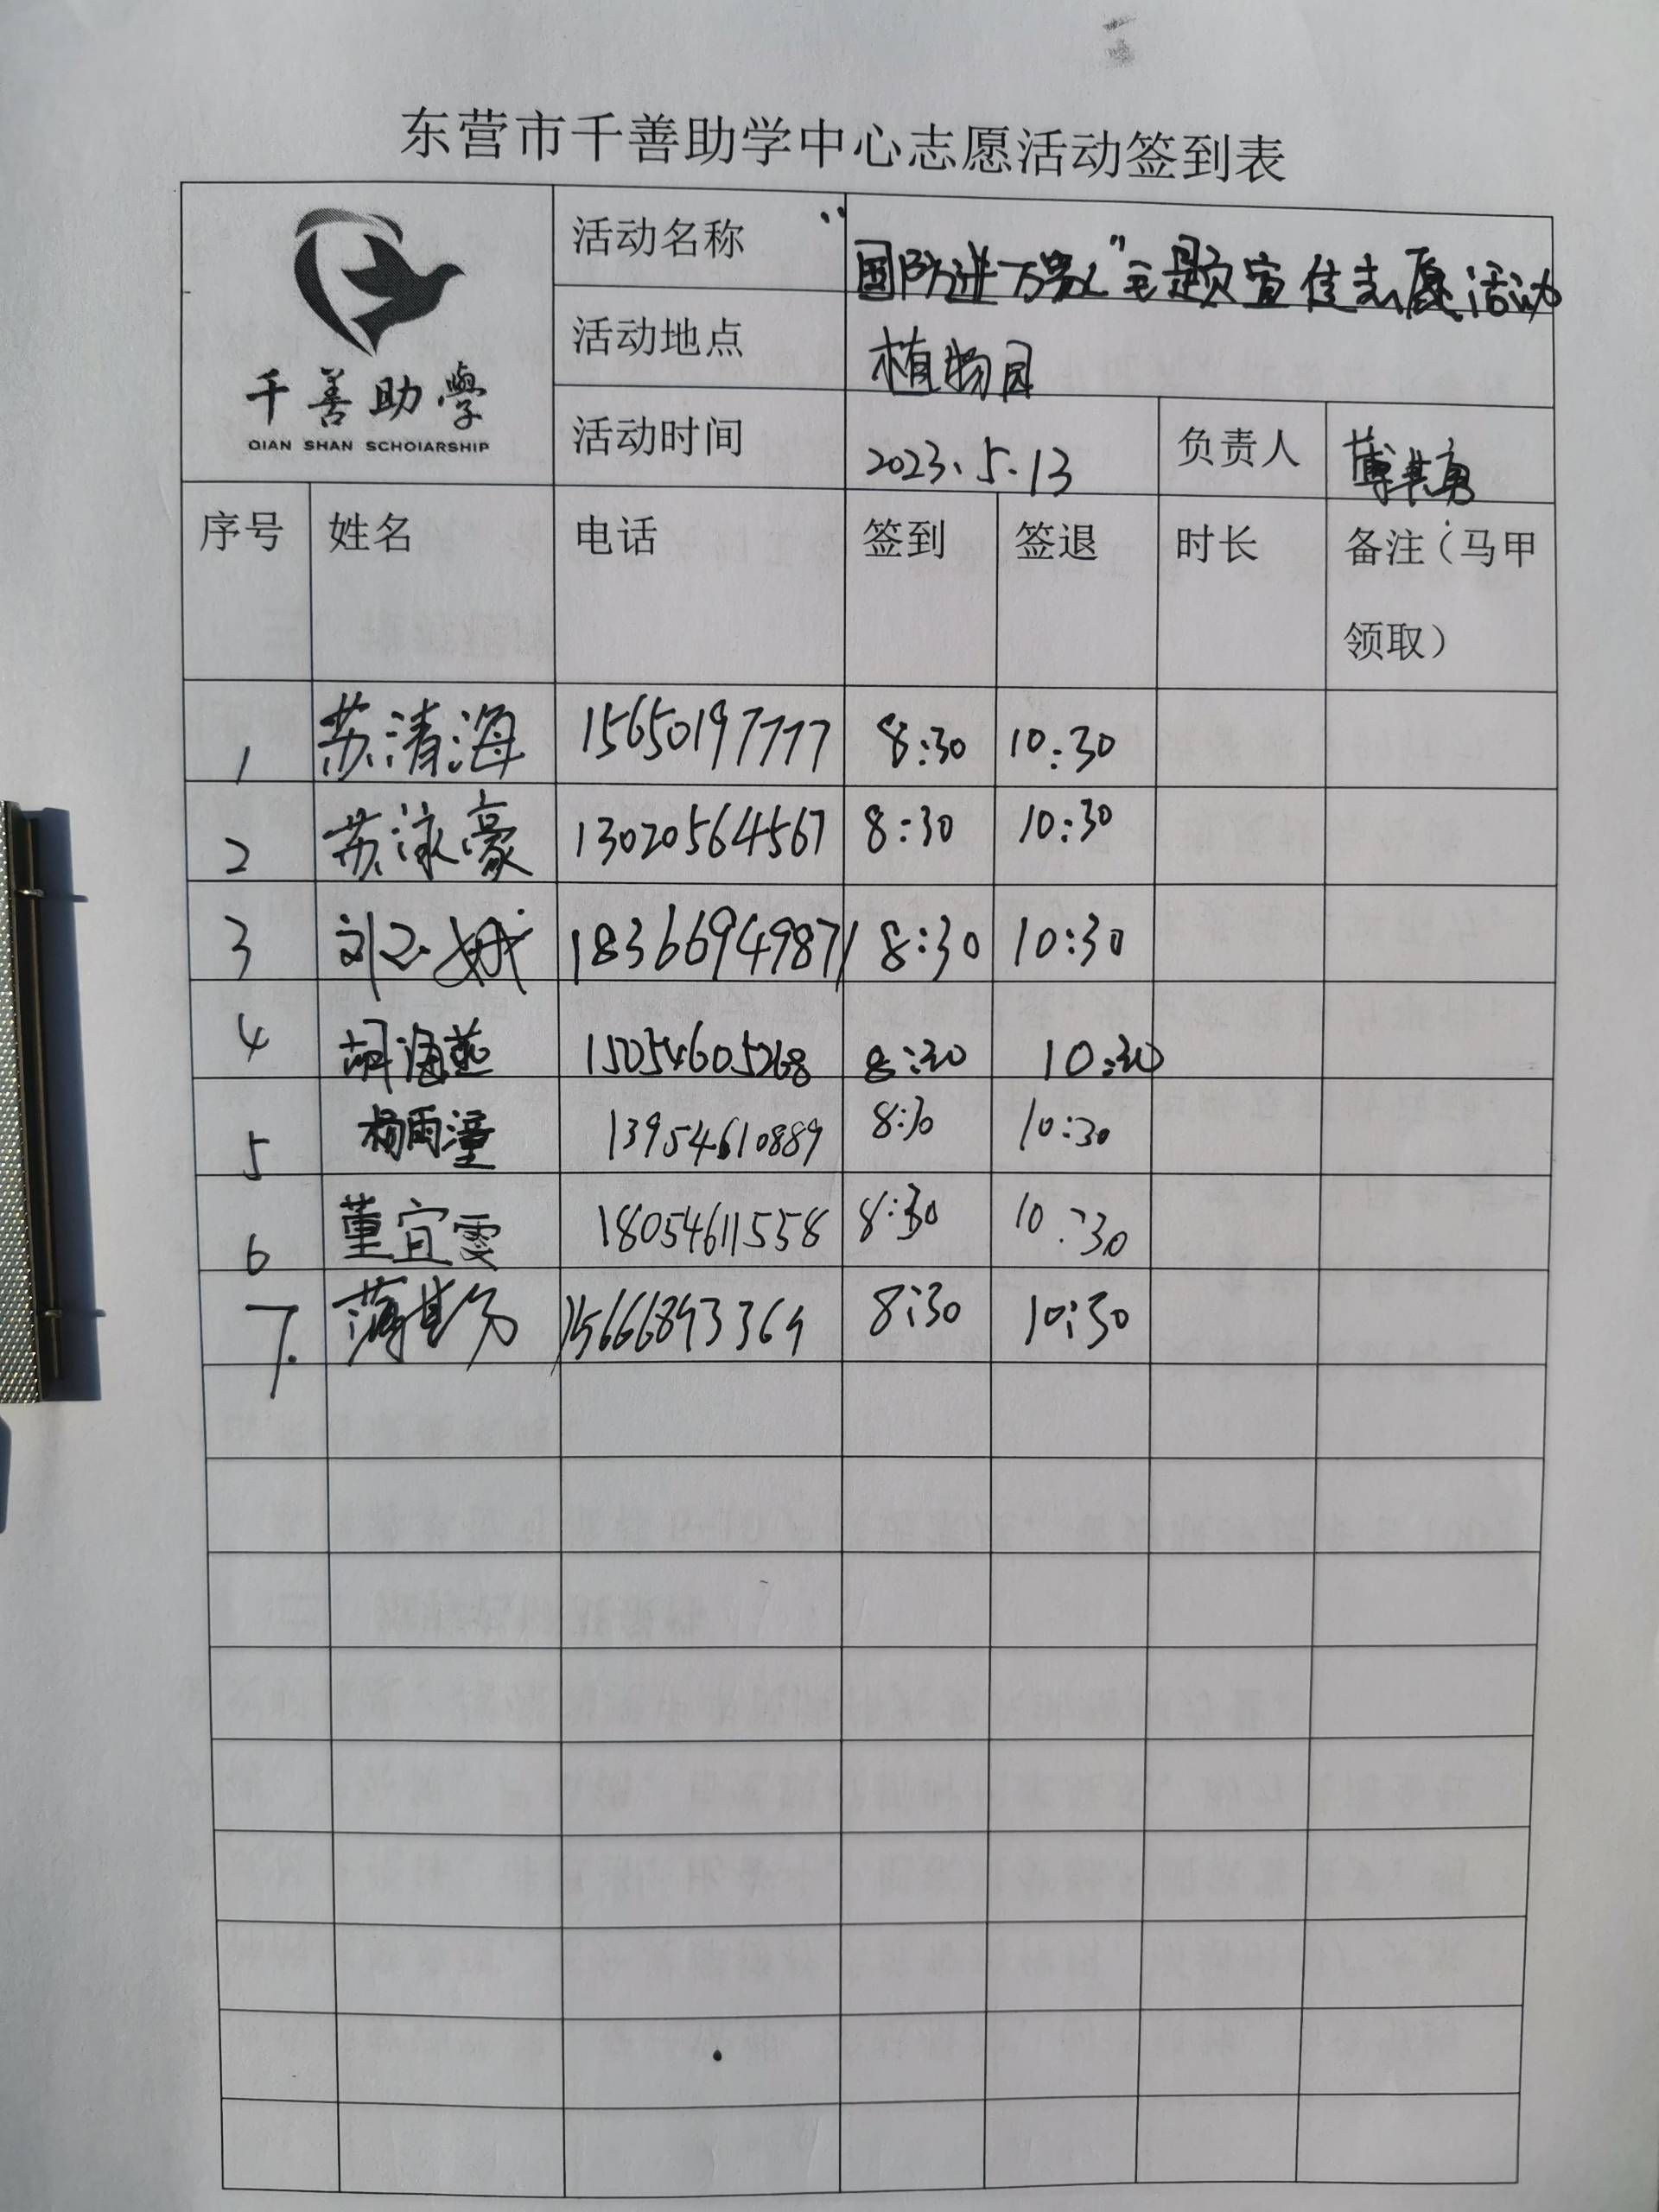 东营市千善助学中心志愿活动签到表
千善助學
QIAN SHAN SCHOIARSHIP
活动名称 “国防进万家”主题宣传志愿活动
活动地点 植物园
活动时间 2023.5.13 负责人
序号 姓名 电话 签到 签退 时长 备注（马甲
领取）
1 苏清海 15650197777 8:30 10:30
2 苏泳豪 13020564567 8:30 10:30
3 18366949871 8:30 10:30
4 胡海燕 15054605268 8:30 10:30
5 杨雨潼 13954610889 8:30 10:30
6 董宜雯 18054611558 8:30 10:30
7. 15666893369 8:30 10:30